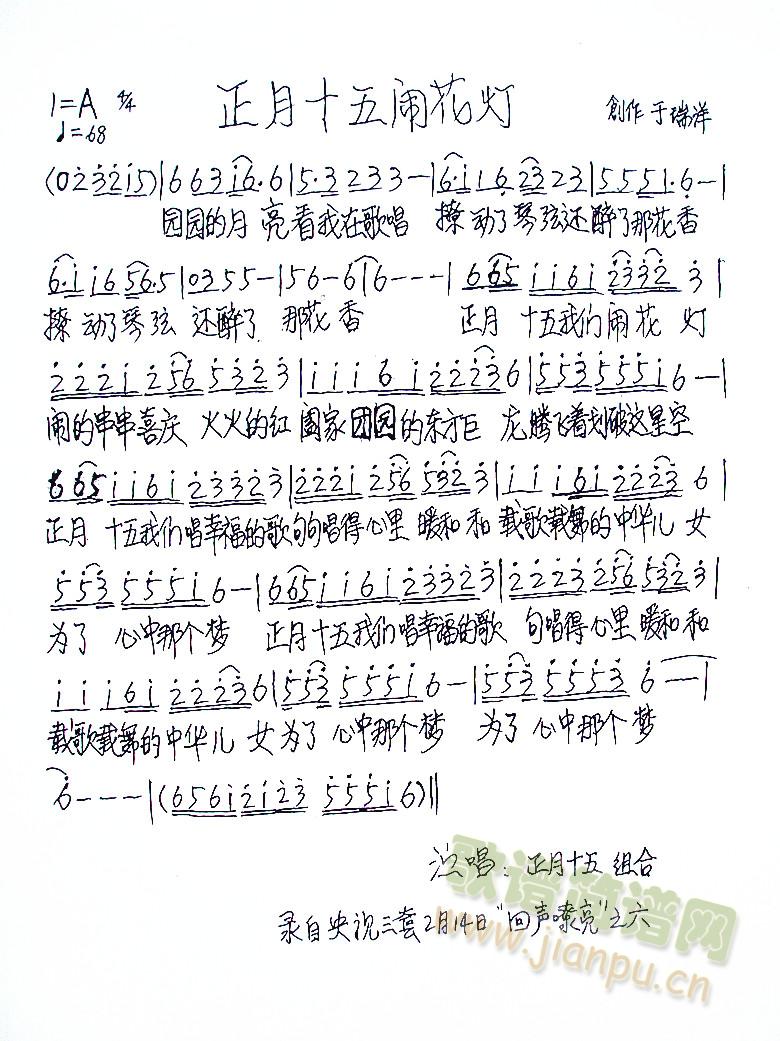 正月十五闹花灯
1=A 4/4
♩=68
創作 于瑞洋
(0 2 3 2 1 5) | 6 6 3 1 6· 6 | 5·3 2 3 3 — | 6·1 1 6 2 3 2 3 | 5 5 5 1· 6 — |
园园的月 亮看我在歌唱 撩动了琴弦还醉了那花香
6·1 1 6 5 6·5 | 0 3 5 5 — | 5 6 — 6 | 6 — — — | 6 6 5 1 1 6 1 2 3 3 2 3 |
撩动了琴弦 还醉了 那花香 正月 十五我们闹花 灯
2 2 2 1 2 5 6 5 3 2 3 | 1 1 1 6 1 2 2 2 3 6 | 5 5 3 5 5 5 1 6 — |
闹的串串喜庆 火火的红 阖家团园的东方巨 龙腾飞着划破这星空
6 6 5 1 1 6 1 2 3 3 2 3 | 2 2 2 1 2 5 6 5 3 2 3 | 1 1 1 6 1 2 2 2 3 6 |
正月 十五我们唱幸福的歌句句唱得心里 暖和和 载歌载舞的中华儿 女
5 5 3 5 5 5 1 6 — | 6 6 5 1 1 6 1 2 3 3 2 3 | 2 2 2 3 2 5 6 5 3 2 3 |
为了 心中那个梦 正月十五我们唱幸福的歌 句唱得心里 暖和和
1 1 1 6 1 2 2 2 3 6 | 5 5 3 5 5 5 1 6 — | 5 5 3 5 5 5 3 6 — — |
载歌载舞的中华儿 女为了 心中那个梦 为了 心中那个梦
6 — — — | (6 5 6 1 2 1 2 3 5 5 5 1 6) ||
演唱：正月十五 组合
录自央视三套2月14日“回声嘹亮”之六
歌谱简谱网
www.jianpu.cn